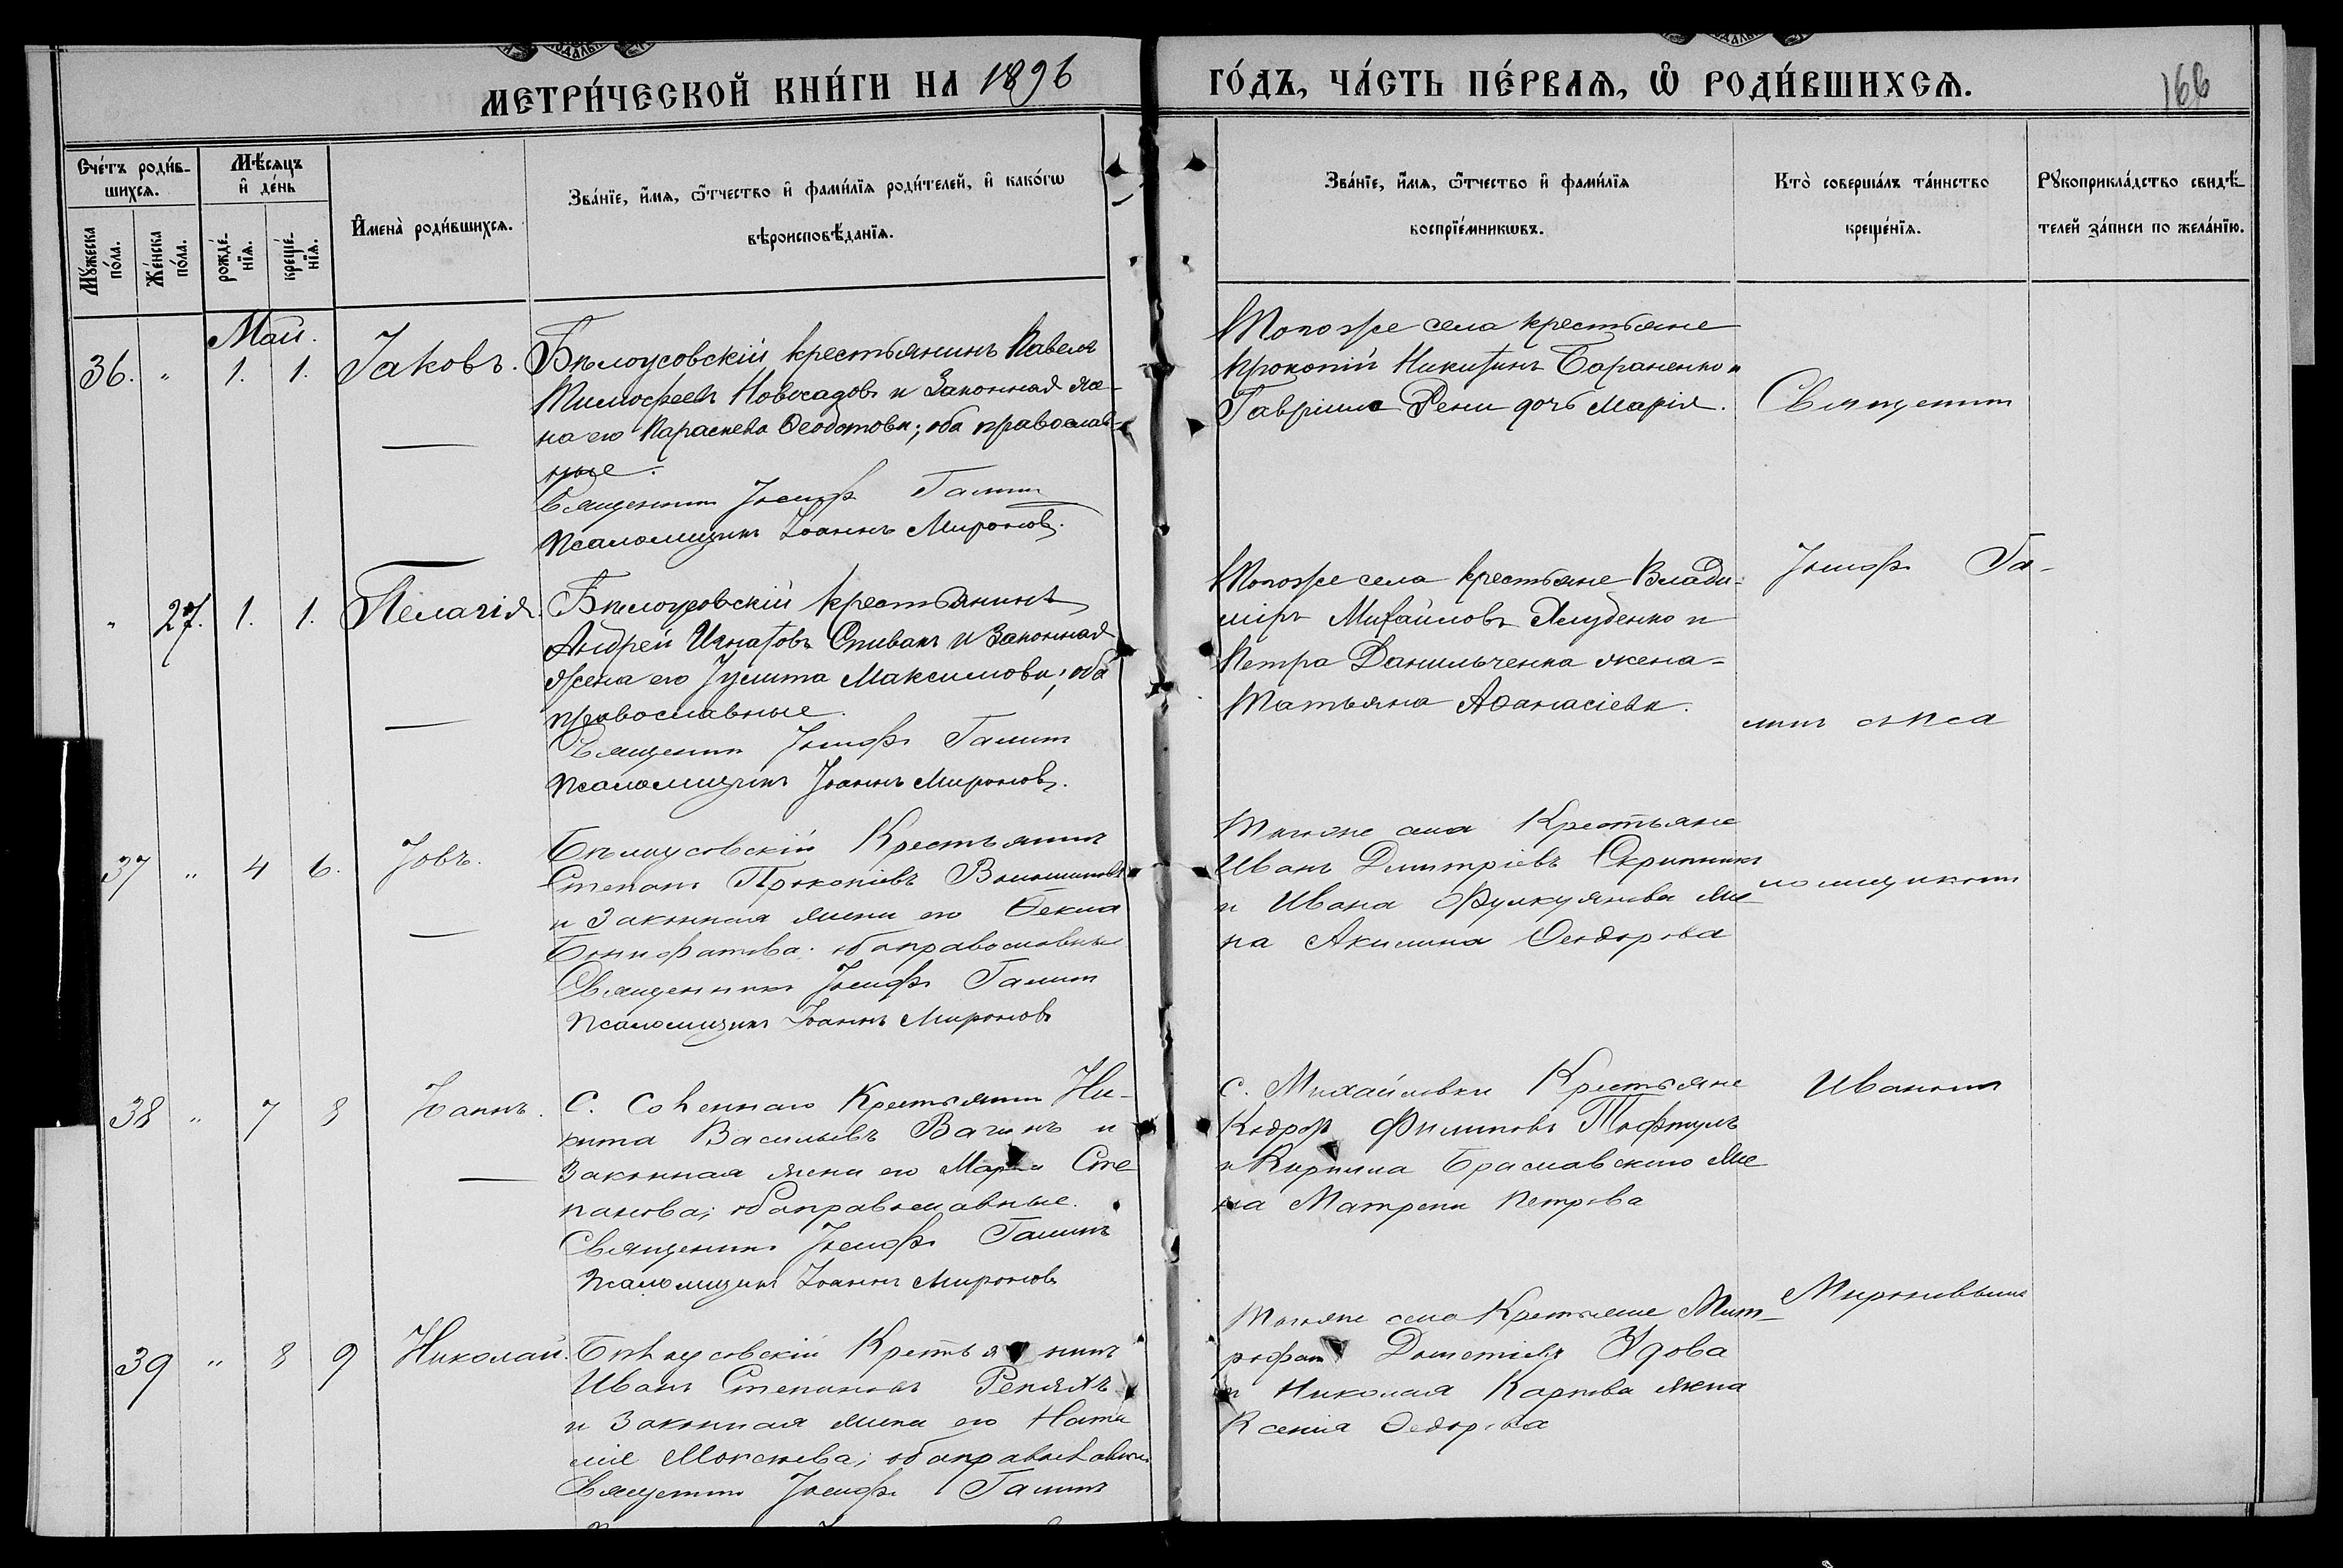 МЕТРИ́ЧЕСКОЙ КНИ́ГИ НА 1896 ГО́ДЪ, ЧА́СТЬ ПЕ́РВАѦ, Ѡ РОДИ́ВШИХСѦ.
166
Сче́тъ роди́в-
шихсѧ.
Мѣ́сѧцъ
и҆ де́нь
Мꙋ́жеска
по́ла.
Же́нска
по́ла.
рожде́-
нїѧ.
креще́-
нїѧ.
И҆мена̀ роди́вшихсѧ.
Зва́нїе, и҆́мѧ, ѻ҆́тчество и҆ фами́лїѧ роди́телей, и҆ како́гѡ
вѣроисповѣ́данїѧ.
Зва́нїе, и҆́мѧ, ѻ҆́тчество и҆ фами́лїѧ
воспрїе́мникѡвъ.
Кто̀ соверша́лъ та́инство
креще́нїѧ.
Рꙋкоприкла́дство свидѣ́-
телей за́писи по жела́нїю.
Май.
36. " 1. 1. Іаковъ.
Бѣлоусовскій крестьянинъ Павелъ
Тимофеевъ Новосадовъ и Законная же-
на его Параскева Ѳеодотова; оба православ-
ные.
Священникъ Іосифъ Галинъ
Псаломщикъ Іоаннъ Мироновъ.
Тогоже села крестьяне
Прокопій Никитинъ Бараненко и
Гавріила Рени дочь Марія.
Священникъ
" 27. 1. 1. Пелагія.
Бѣлоусовскій крестьянинъ
Андрей Игнатовъ Спивакъ и Законная
жена его Іулита Максимова; оба
православные.
Священникъ Іосифъ Галинъ
Псаломщикъ Іоаннъ Мироновъ.
Тогоже села крестьяне Влади-
міръ Михайловъ Ялуденко и
Петра Данильченка жена
Татьяна Аѳанасіева.
Іосифъ Га-
линъ съ Пса
37 " 4 6. Іовъ.
Бѣлоусовскій Крестьянинъ
Степанъ Прокопіевъ
и Законная жена его Ѳекла
Бонифатова; оба православные
Священникъ Іосифъ Галинъ
Псаломщикъ Іоаннъ Мироновъ
Тогоже села Крестьяне
Иванъ Дмитріевъ Скрипникъ
и Ивана же-
на Акилина Ѳеодорова
ломщикомъ
38 " 7 8 Іоаннъ.
С. Крестьянинъ Ни-
кита Васильевъ Вагинъ и
Законная жена его Марія Сте
панова; оба православные.
Священникъ Іосифъ Галинъ
Псаломщикъ Іоаннъ Мироновъ
С. Михайловки Крестьяне
Филиповъ
и Кирилла Браславскаго же
на Матрена Петрова
Иваномъ
39 " 8 9 Николай.
Бѣлоусовскій Крестьянинъ
Иванъ Степановъ Репяхъ
и Законная жена его Ната
лія Мокеева; оба православные
Священникъ Іосифъ Галинъ
Тогоже села Крестьяне Мит-
рофанъ Дометіевъ Удова
и Николая Карпова жена
Ксенія Ѳедорова
Мироновымъ